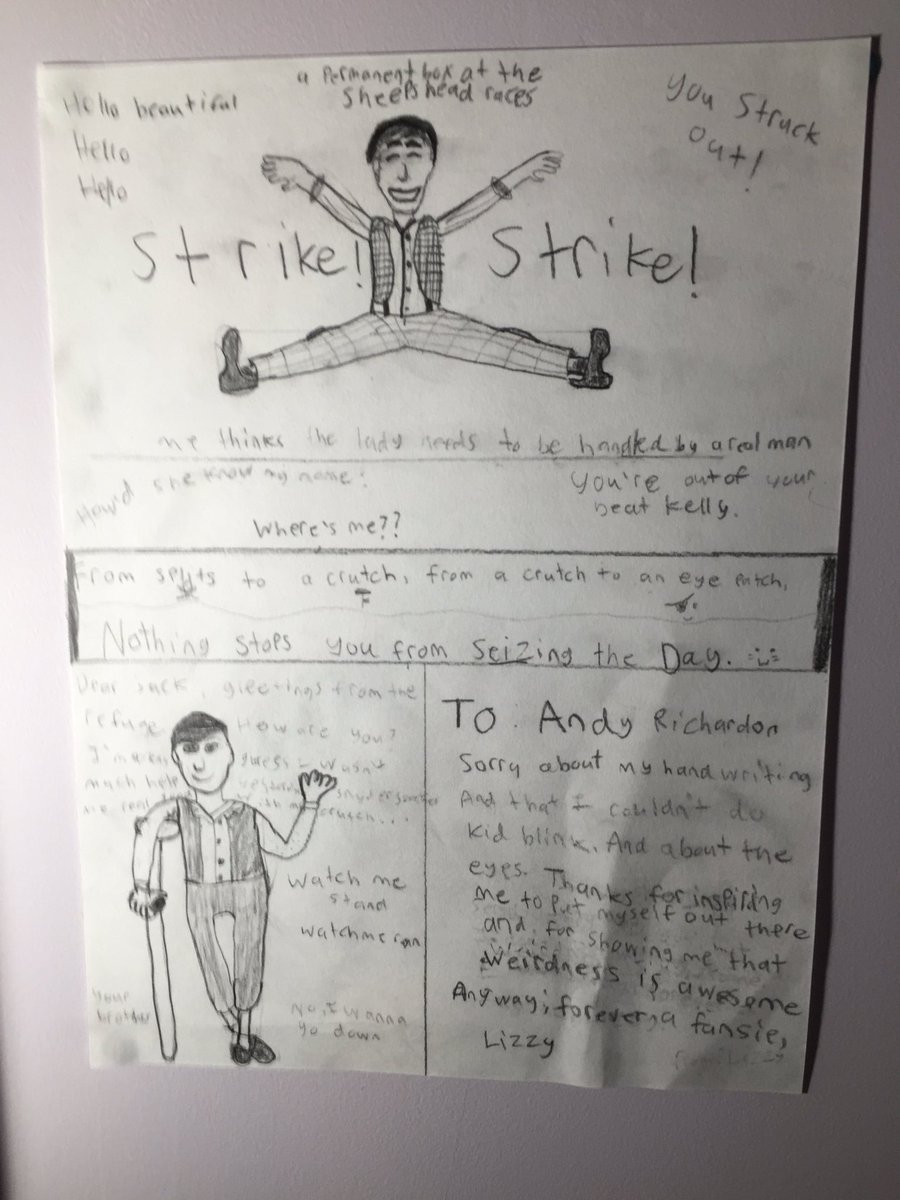 a permanent box at the
Sheepshead races
Hello beautiful
Hello
Hello
You Struck
out!
Strike! Strike!
me thinks the lady needs to be handled by a real man
How'd she know my name?
You're out of your
beat Kelly.
Where's me??
From splits to a crutch, from a crutch to an eye patch,
Nothing stops you from Seizing the Day.
Dear Jack, greetings from the
refuge How are you?
I'm guess I wasn't
much help
me real crutch...
watch me
stand
watch me run
your
brother
No, I wanna
go down
To: Andy Richardon
Sorry about my handwriting
And that I couldn't do
kid blink. And about the
eyes. Thanks for inspiring
me to put myself out there
and for showing me that
Weirdness is awesome
Anyway; forever a fansie,
Lizzy